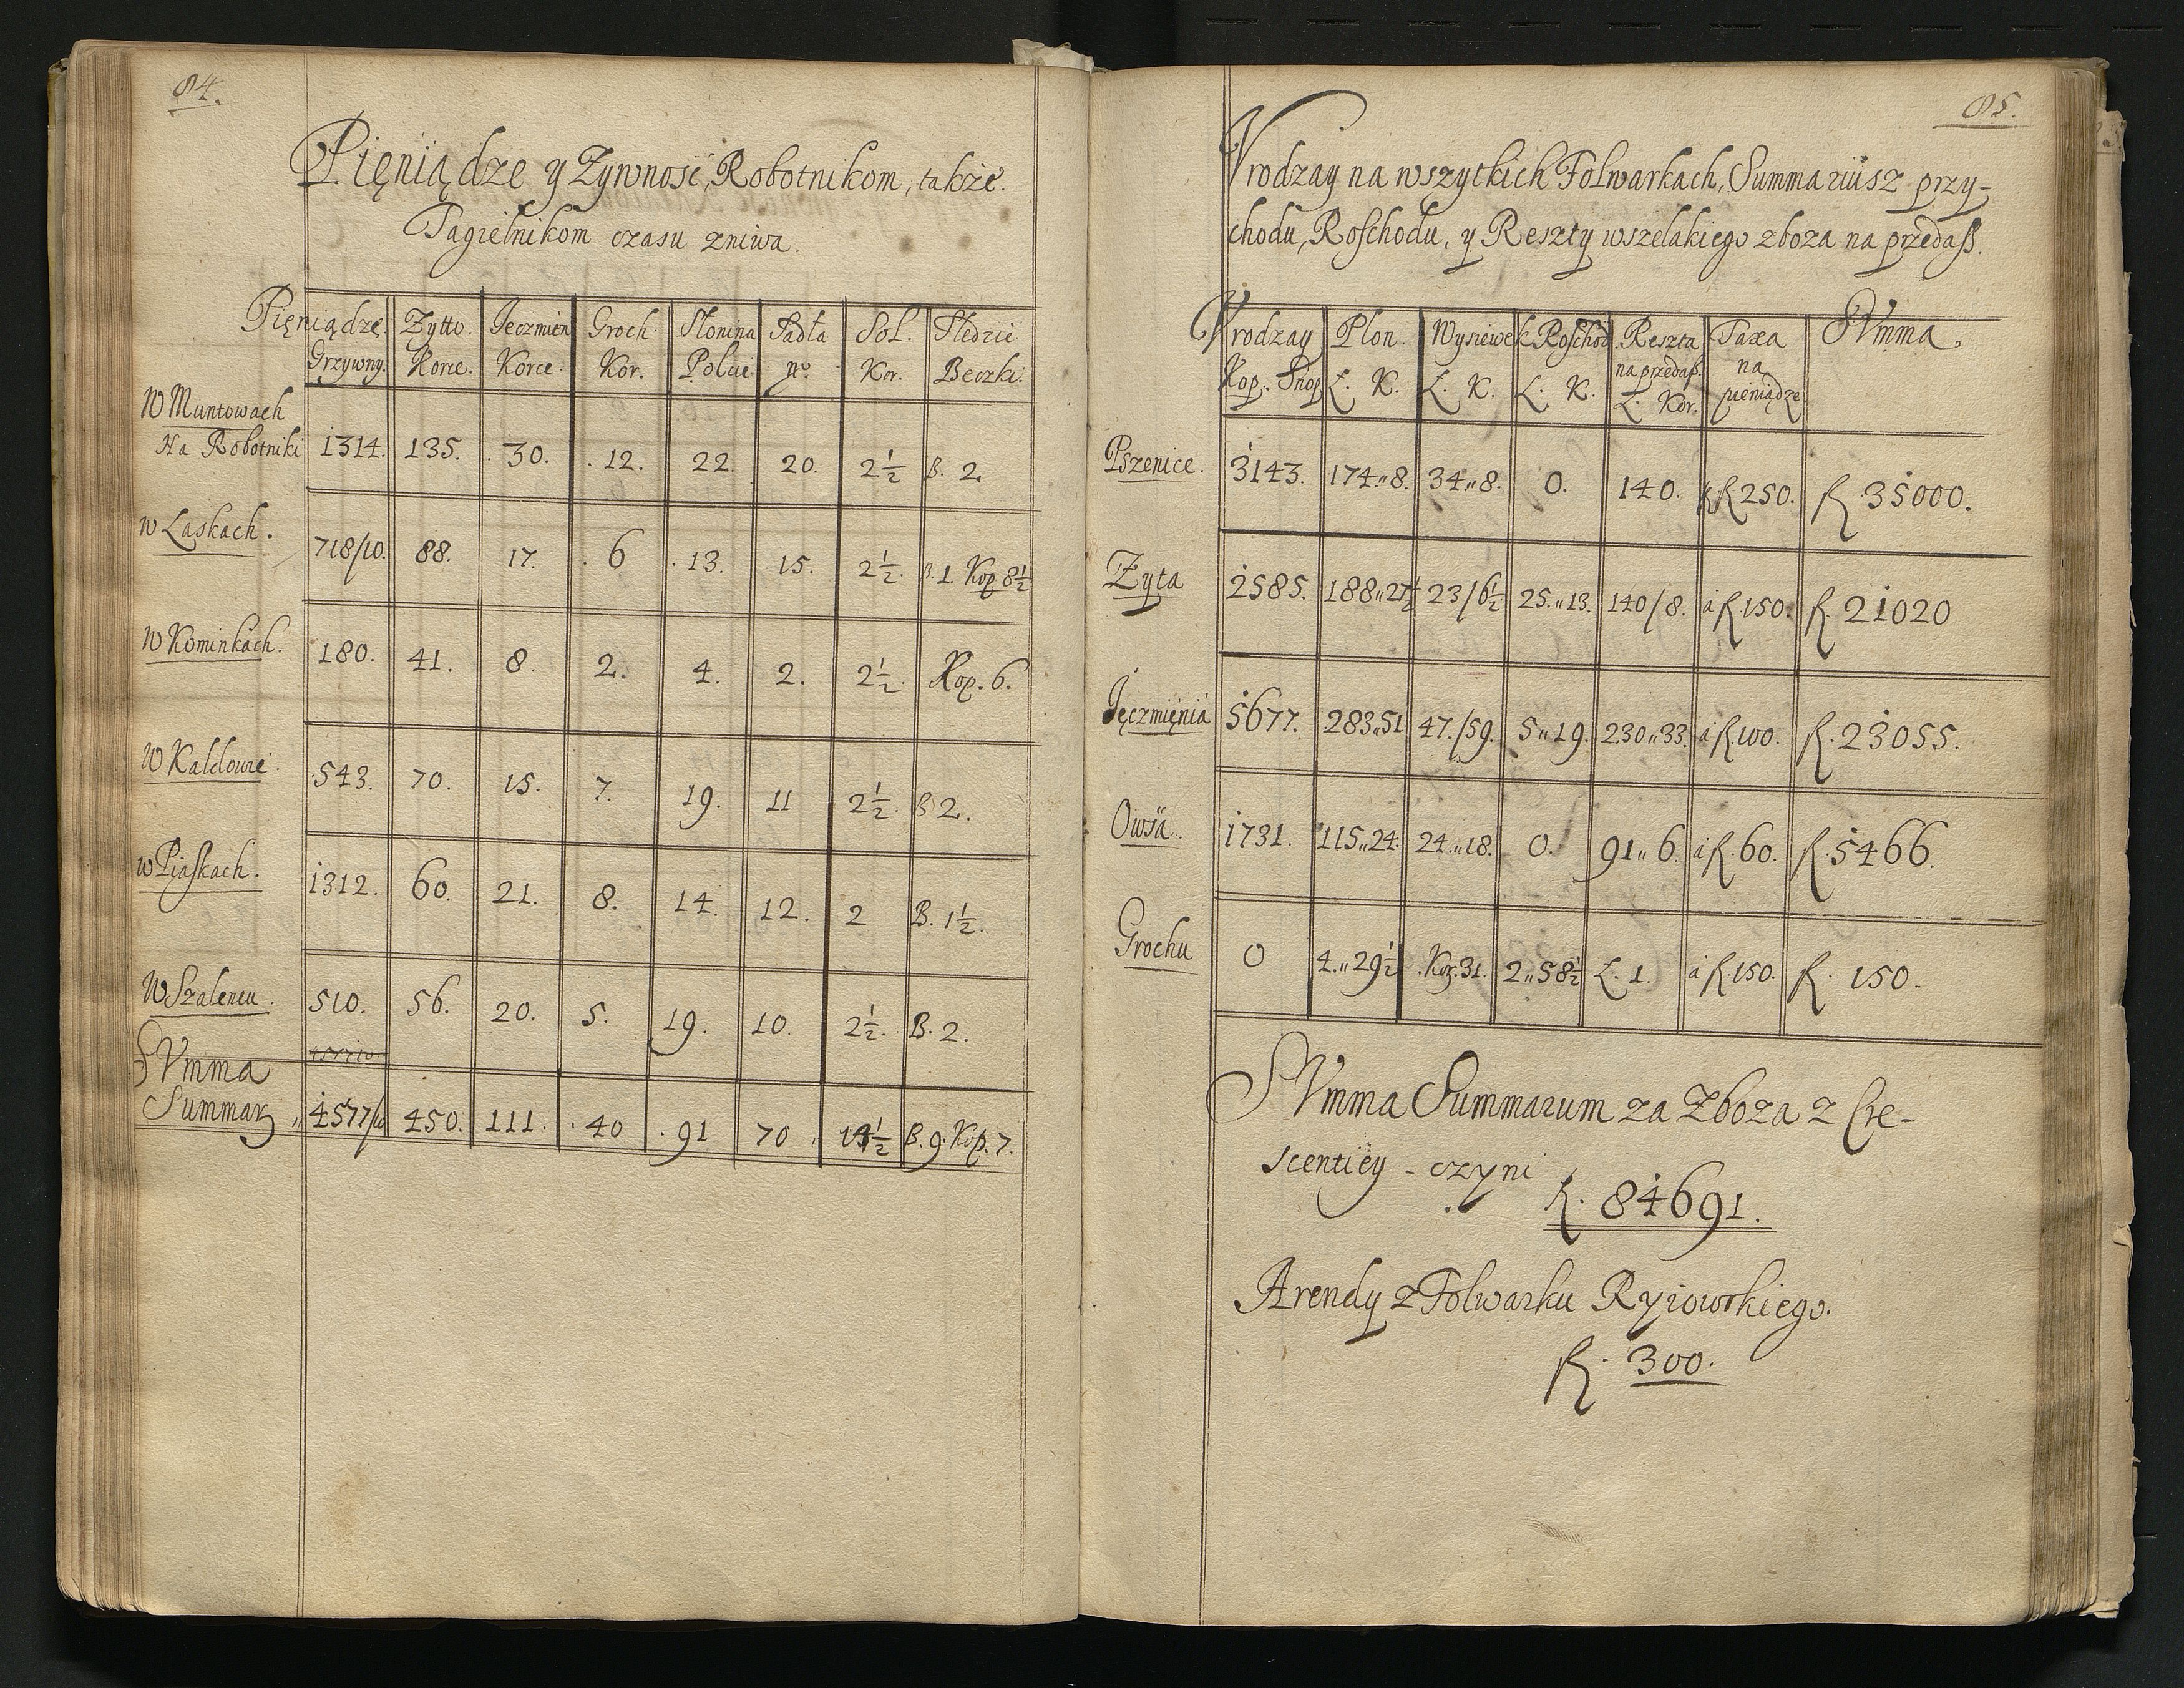 84.
Pięniądze y Zywnosć, Robotnikom, także
Pagielnikom czasu zniwa.
Pięniądze. Zytto. Jeczmien Groch Słonina Sadła Sol. Sledzie
Grzywny. Korce. Korce. Kor. Polcie nº. Kor. Beczki.
W Muntowach
Na Robotniki 1314. 135. 30. 12. 22. 20. 2½ B. 2.
W Laskach. 718/10. 88. 17. 6 13. 15. 2½. B. 1. Kop 8½
W Kominkach. 180. 41. 8. 2. 4. 2. 2½. Kop. 6.
W Kaldowie. 543. 70. 15. 7. 19. 11 2½. B 2.
w Piaskach. 1312. 60. 21. 8. 14. 12. 2 B. 1½.
W Szaleniu. 510. 56. 20. 5. 19. 10. 2½. B. 2.
SVmma
Summar 4577/10 450. 111. 40 91 70 14½ B. 9. Kop. 7.
85.
Vrodzay na wszytkich Folwarkach, Summariusz przy-
chodu, Roschodu, y Reszty wszelakiego zboza na przedaß.
Vrodzay Plon. Wysiewek Roschod. Reszta Taxa SVmma.
na przedaß. na
Kop. Snop Ł. K. Ł. K. Ł. K. Ł. Kor. pieniądze
Pszenice. 3143. 174.„8. 34„8. 0. 140. à fl 250. fl 35000.
Zyta 2585. 188„27½ 23/6½ 25.„13. 140/8. à fl. 150. fl. 21020
Jęczmięnia 5677. 283„51 47./59. 5„19. 230„33. à fl. 100. fl. 23055.
Owsa. 1731. 115„24. 24.„18. 0. 91„6. à fl. 60. fl. 5466.
Grochu 0 4.„29½ Kor. 31. 2„58½ Ł. 1. à fl. 150. fl. 150.
SVmma Summarum za Zboza z Cre-
scentiey - czyni
fl. 84691.
Arendy z Folwarku Ryiowskiego.
fl. 300.